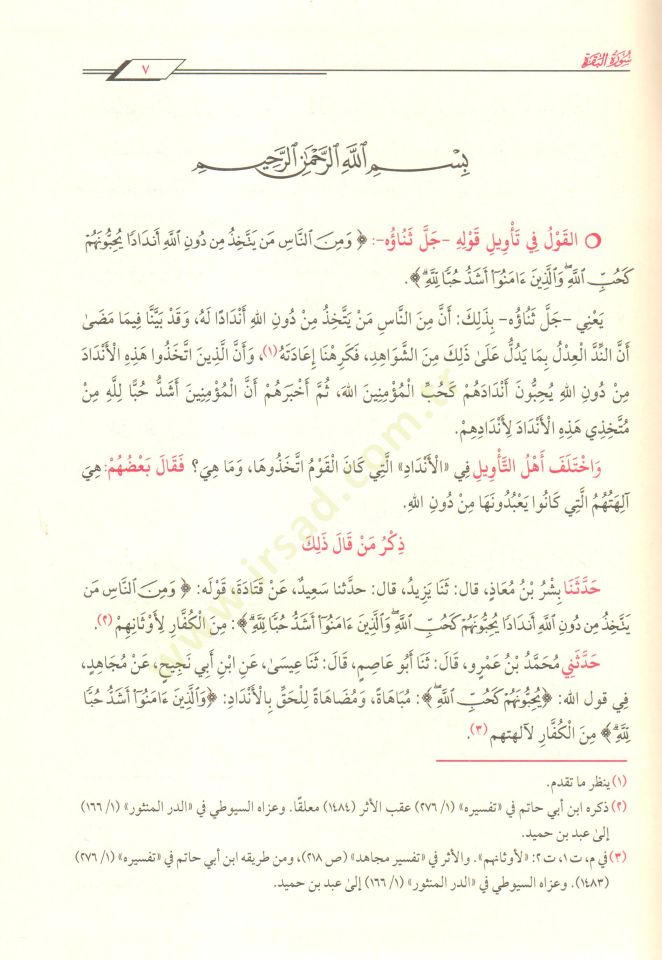 سورة البقرة
٧
بِسْمِ اللَّهِ الرَّحْمَٰنِ الرَّحِيمِ
القَوْلُ فِي تَأْوِيلِ قَوْلِهِ -جَلَّ ثَنَاؤُه-: ﴿ وَمِنَ النَّاسِ مَن يَتَّخِذُ مِن دُونِ اللَّهِ أَندَادًا يُحِبُّونَهُمْ
كَحُبِّ اللَّهِ ۖ وَالَّذِينَ ءَامَنُوٓا أَشَدُّ حُبًّا لِلَّهِ ۗ ﴾.
يَعْنِي -جَلَّ ثَنَاؤُه- بِذَلِكَ: أَنَّ مِنَ النَّاسِ مَنْ يَتَّخِذُ مِنْ دُونِ اللهِ أَنْدَادًا لَهُ، وَقَدْ بَيَّنَّا فِيمَا مَضَىٰ
أَنَّ النِّدَّ العِدْلُ بِمَا يَدُلُّ عَلَىٰ ذَلِكَ مِنَ الشَّوَاهِدِ، فَكَرِهْنَا إِعَادَتَهُ (١)، وَأَنَّ الَّذِينَ اتَّخَذُوا هَذِهِ الْأَنْدَادَ
مِنْ دُونِ اللهِ يُحِبُّونَ أَنْدَادَهُمْ كَحُبِّ الْمُؤْمِنِينَ اللهَ، ثُمَّ أَخْبَرَهُمْ أَنَّ الْمُؤْمِنِينَ أَشَدُّ حُبًّا لِلَّهِ مِنْ
مُتَّخِذِي هَذِهِ الْأَنْدَادَ لِأَنْدَادِهِمْ.
وَاخْتَلَفَ أَهْلُ التَّأْوِيلِ فِي «الْأَنْدَادِ» الَّتِي كَانَ الْقَوْمُ اتَّخَذُوهَا، وَمَا هِيَ؟ فَقَالَ بَعْضُهُمْ: هِيَ
آلِهَتُهُمُ الَّتِي كَانُوا يَعْبُدُونَهَا مِنْ دُونِ اللهِ.
ذِكْرُ مَنْ قَالَ ذَلِكَ
حَدَّثَنَا بِشْرُ بْنُ مُعَاذٍ، قال: ثَنَا يَزِيدُ، قال: حدَّثنا سَعِيدٌ، عَنْ قَتَادَةَ، قَوْلَه: ﴿ وَمِنَ النَّاسِ مَن
يَتَّخِذُ مِن دُونِ اللَّهِ أَندَادًا يُحِبُّونَهُمْ كَحُبِّ اللَّهِ ۖ وَالَّذِينَ ءَامَنُوٓا أَشَدُّ حُبًّا لِلَّهِ ۗ ﴾: مِنَ الْكُفَّارِ لِأَوْثَانِهِمْ (٢).
حَدَّثَنِي مُحَمَّدُ بْنُ عَمْرٍو، قَالَ: ثَنَا أَبُو عَاصِمٍ، قَالَ: ثَنَا عِيسَىٰ، عَنِ ابْنِ أَبِي نَجِيحٍ، عَنْ مُجَاهِدٍ،
فِي قول الله: ﴿يُحِبُّونَهُمْ كَحُبِّ اللَّهِ ۖ﴾: مُبَاهَاةً، وَمُضَاهَاةً لِلْحَقِّ بِالْأَنْدَادِ: ﴿وَالَّذِينَ ءَامَنُوٓا أَشَدُّ حُبًّا
لِلَّهِ ۗ﴾ مِنَ الْكُفَّارِ لآلهتهم (٣).
(١) ينظر ما تقدم.
(٢) ذكره ابن أبي حاتم في «تفسيره» (١/ ٢٧٦) عقب الأثر (١٤٨٤) معلقًا. وعزاه السيوطي في «الدر المنثور» (١/ ١٦٦)
إلىٰ عبد بن حميد.
(٣) في م، ت ١، ت ٢: «لأوثانهم». والأثر في «تفسير مجاهد» (ص ٢١٨)، ومن طريقه ابن أبي حاتم في «تفسيره» (١/ ٢٧٦)
(١٤٨٣). وعزاه السيوطي في «الدر المنثور» (١/ ١٦٦) إلىٰ عبد بن حميد.
www.irsad.com.tr